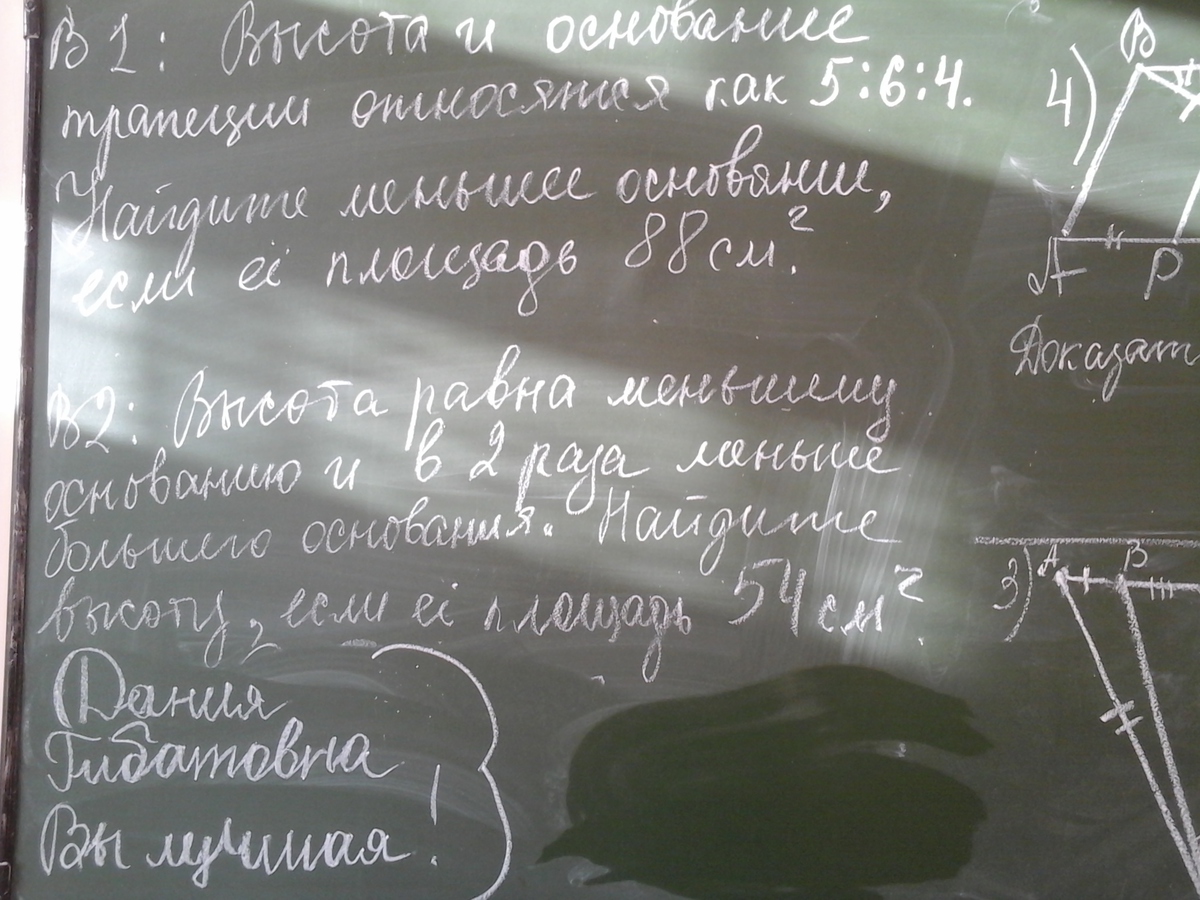 В1: Высота и основание
трапеции относятся как 5:6:4.
Найдите меньшее основание,
если её площадь 88 см².
В2: Высота равна меньшему
основанию и в 2 раза меньше
большего основания. Найдите
высоту, если её площадь 54 см².
Дания
Гибатовна
Вы лучшая!
4)
В
А Р
Доказат
3) А В